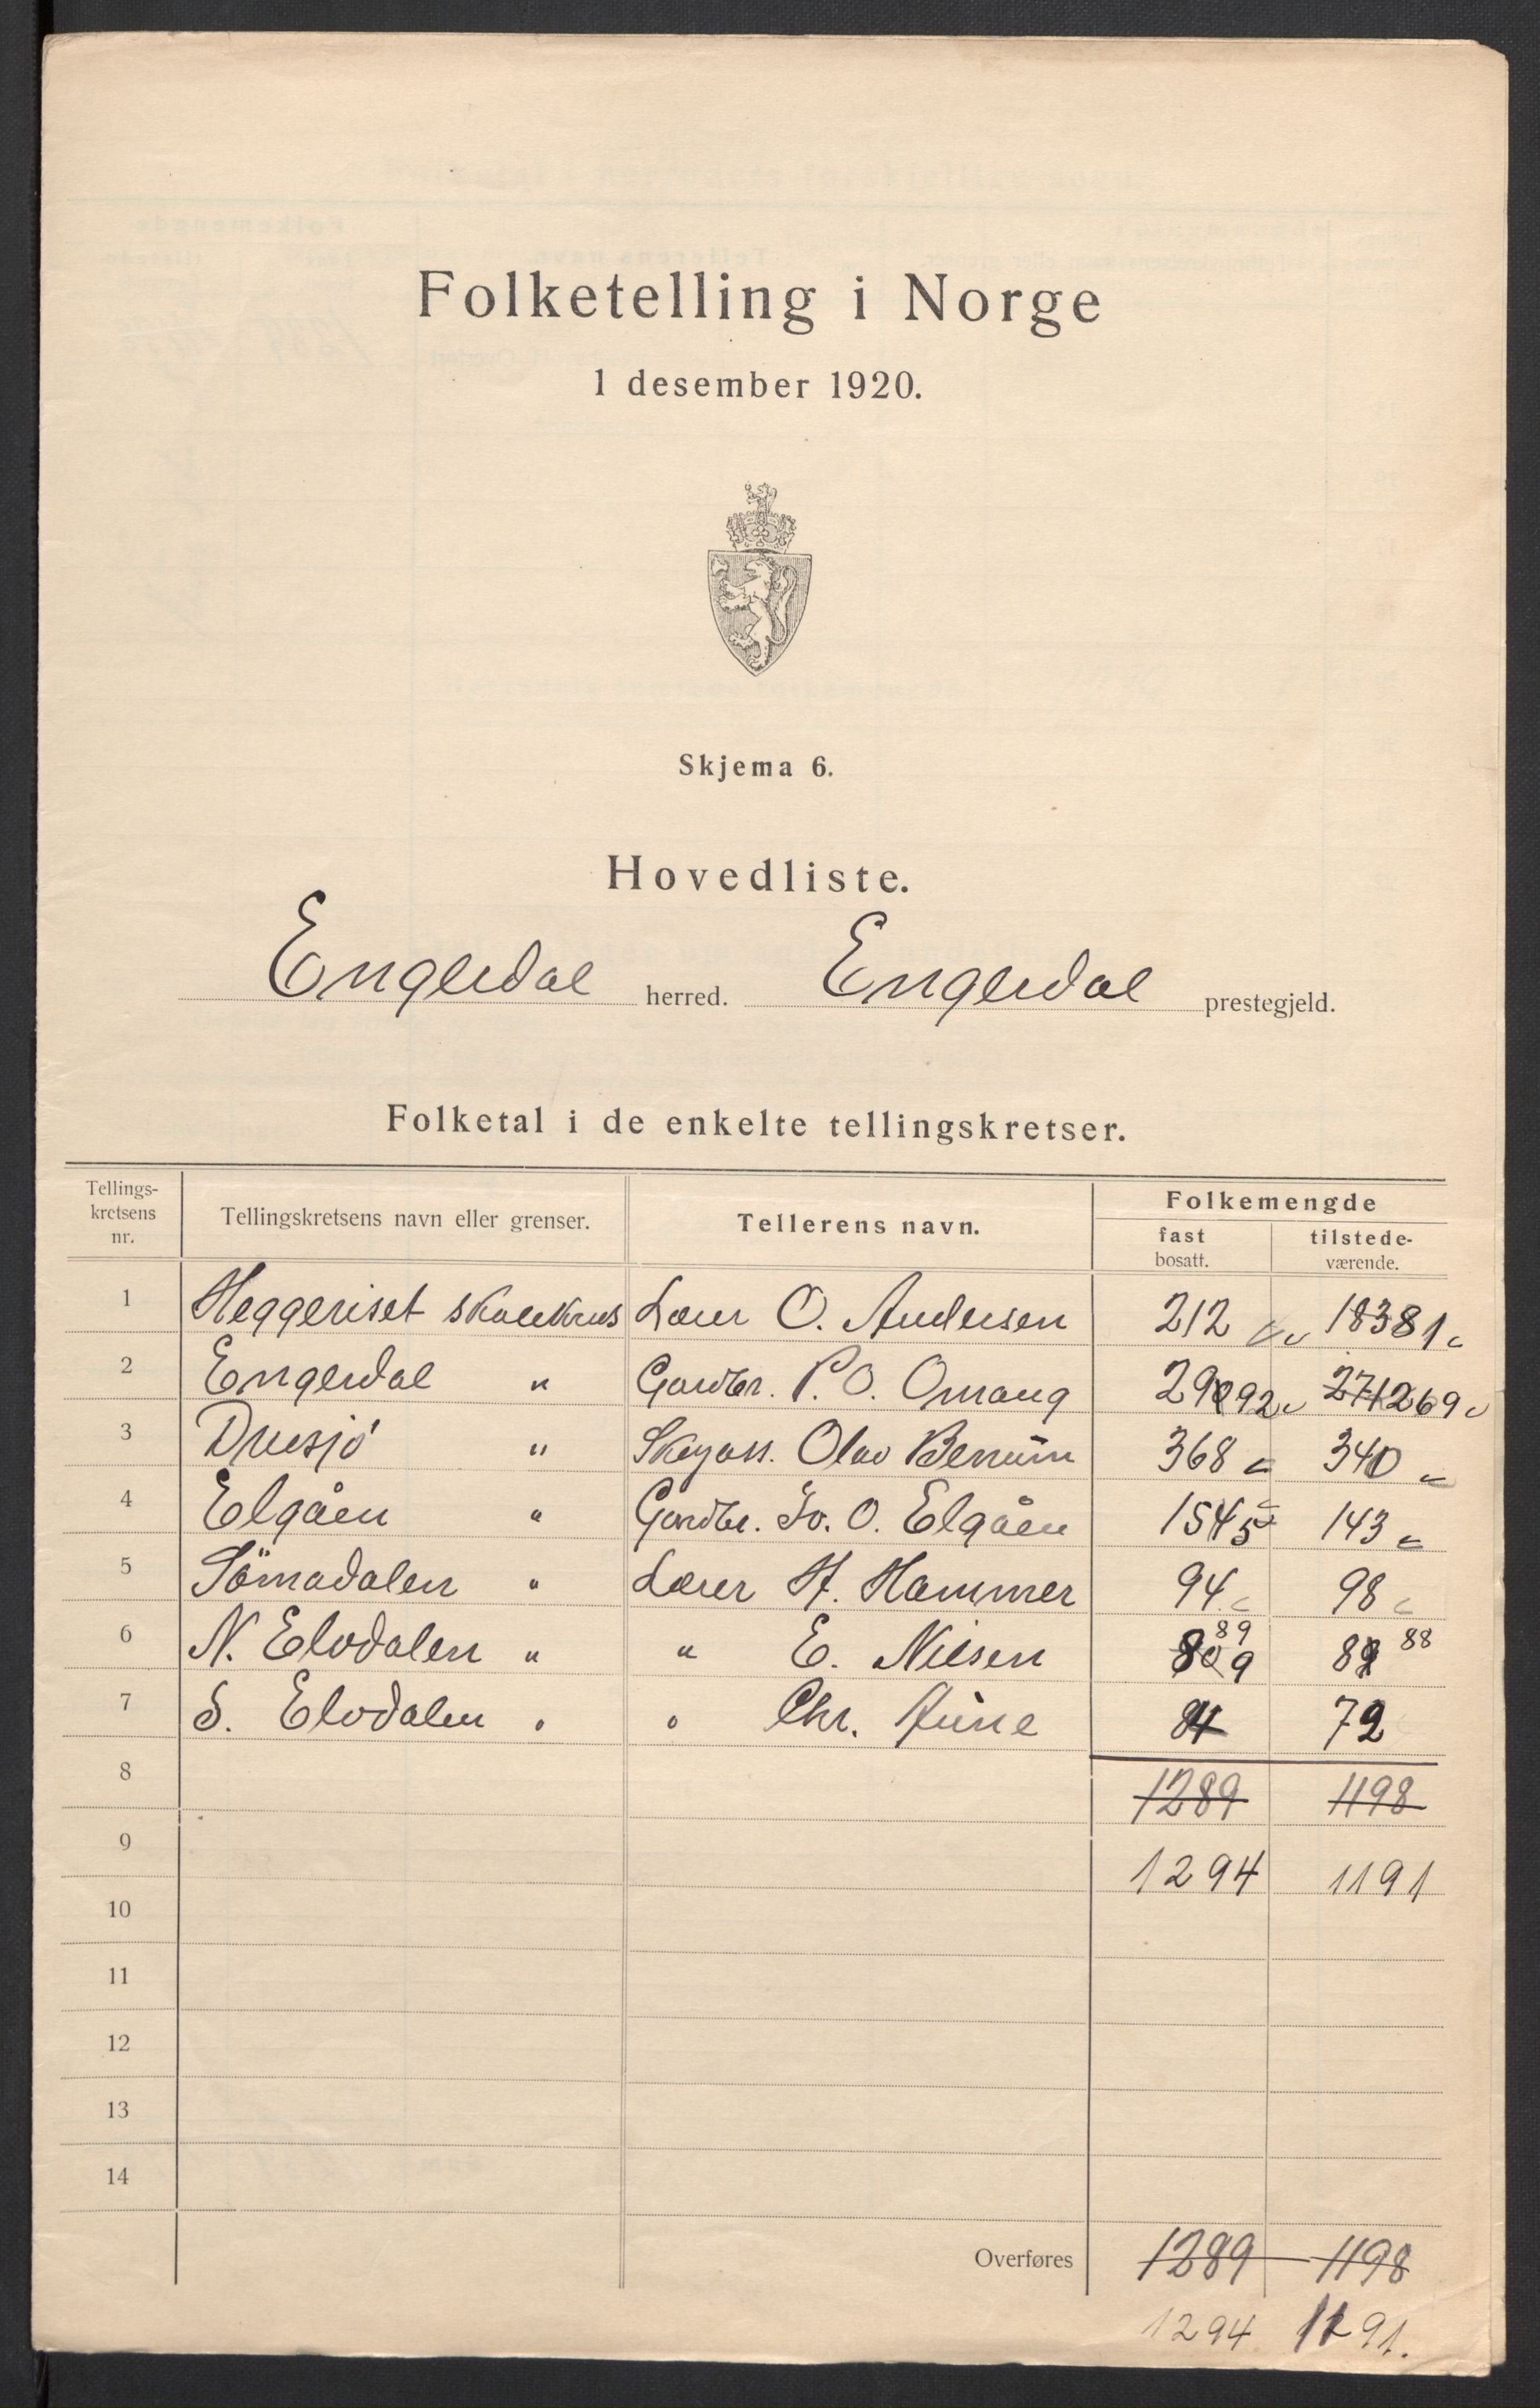 Folketelling i Norge
1 desember 1920.
Skjema 6.
Hovedliste.
Engerdal herred. Engerdal prestegjeld.
Folketal i de enkelte tellingskretser.
Tellings-
kretsens
nr.
Tellingskretsens navn eller grenser.
Tellerens navn.
Folkemengde
fast
bosatt.
tilstede-
værende.
1 Heggeriset skolekres Lærer O. Andersen 212 18381
2 Engerdal " Gardbr. P. O. Omang 29092 271269
3 Drusjø " Skogass. Olav Berrum 368 340
4 Elgåen " Gardbr. Jo. O. Elgåen 1545 143
5 Sömådalen " Lærer H. Hammer 94 98
6 N. Elvdalen " " E. Nilsen 89 88
7 S. Elvdalen " " Chr. Aune 84 72
8 1289 1198
9 1294 1191
10
11
12
13
14
Overføres 1289 1198
1294 1191.